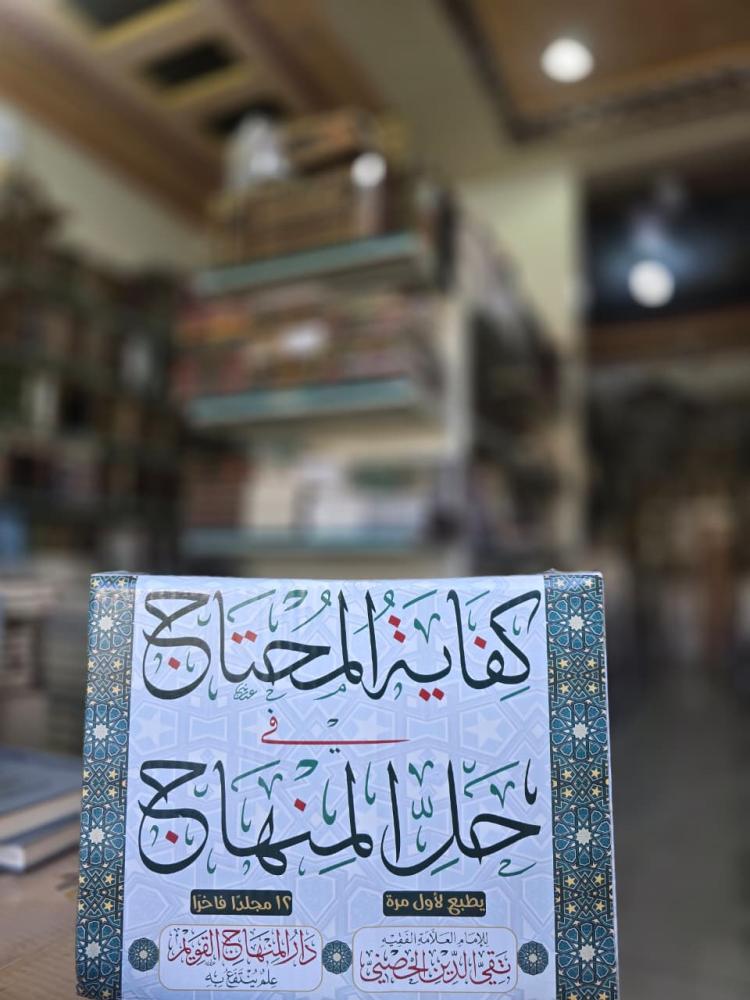 كفاية المحتاج
في
حل المنهاج
يطبع لأول مرة
١٢ مجلدًا فاخرًا
للإمام العلامة الفقيه
تقي الدين الحصني
دار المنهاج القويم
علم ينتفع به